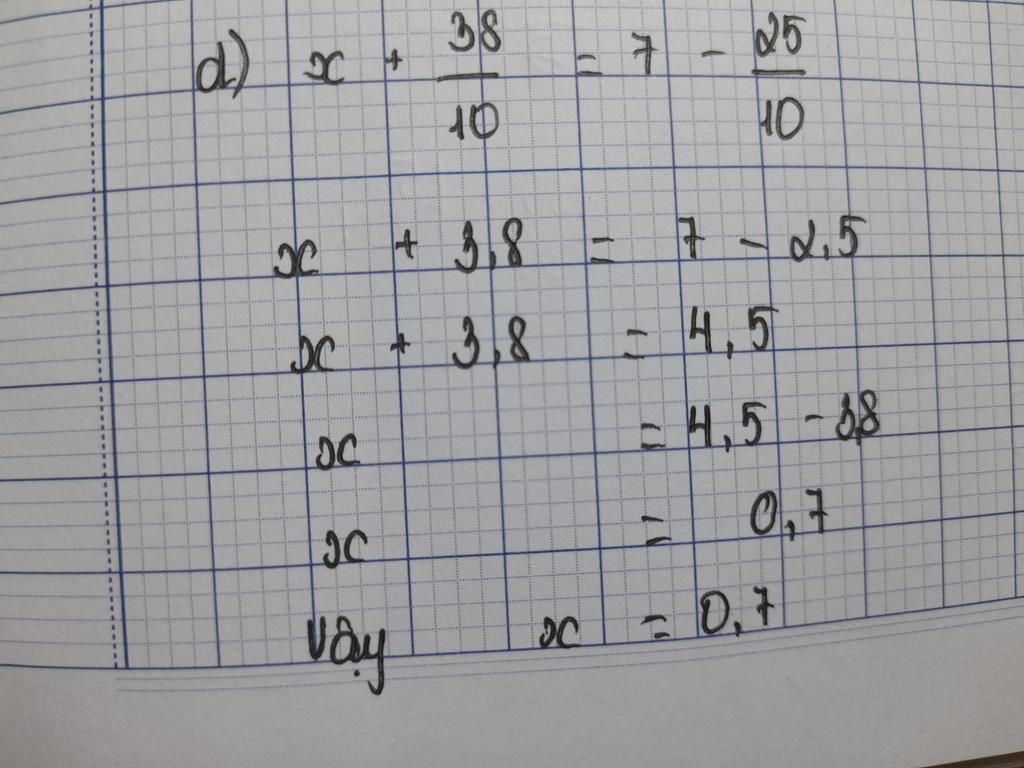 d) x + 38/10 = 7 - 25/10
x + 3,8 = 7 - 2,5
x + 3,8 = 4,5
x = 4,5 - 3,8
x = 0,7
Vậy x = 0,7